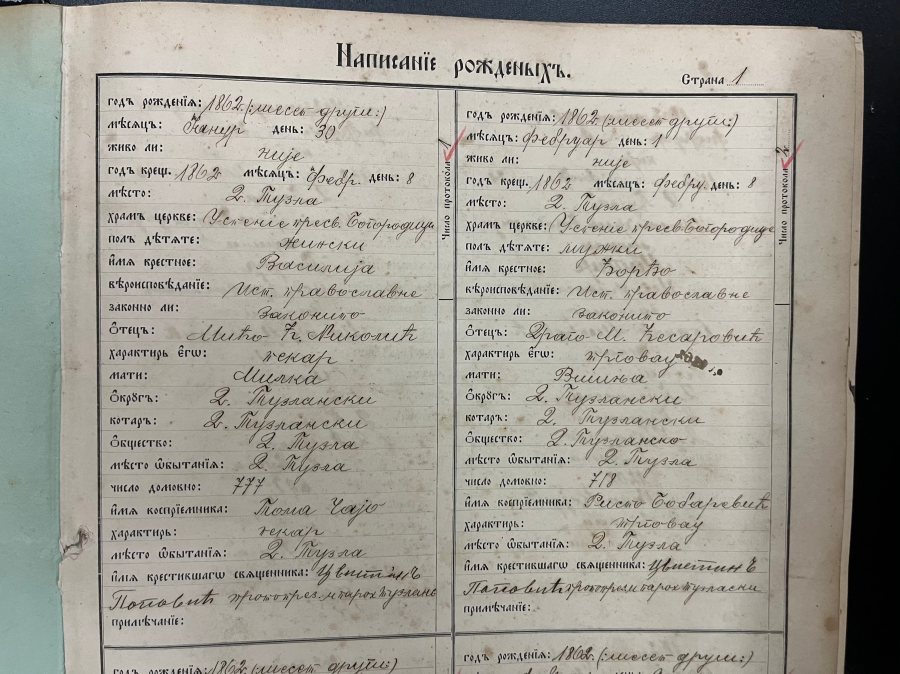 Написанїе рожденыхъ.
Страна 1
годъ рожденїя: 1862 (:шесет други:)
мѣсяцъ: Јануар день: 30
живо ли: није
годъ крещ. 1862 мѣсяцъ: Фебр. день: 8
мѣсто: Д. Тузла
храмъ церкве: Успеније пресв. Богородице
полъ дѣтяте: женски
имя крестное: Василија
вѣроисповѣданїе: Ист. православне
законно ли: законито
Ѻтецъ: Мићо Николић
характирь єгѡ: пекар
мати: Милка
Ѻкрꙋгъ: Д. Тузлански
котаръ: Д. Тузлански
Ѻбщество: Д. Тузла
мѣсто ѡбытанїя: Д. Тузла
число домовно: 777
имя коспрїемника: Тома Чајо
характирь: пекар
мѣсто ѡбытанїя: Д. Тузла
имя крестившагѡ священника: Цвијетин Ђ
Поповић протопрез. и парох тузлански
примѣчанїе:
Число протокола 1
годъ рожденїя: 1862 (:шесет други:)
мѣсяцъ: Фебруар день: 1
живо ли: није
годъ крещ. 1862 мѣсяцъ: Фебру. день: 8
мѣсто: Д. Тузла
храмъ церкве: Успеније пресв. Богородице
полъ дѣтяте: мушки
имя крестное: Ђорђо
вѣроисповѣданїе: Ист. православне
законно ли: законито
Ѻтецъ: Драго М. Ћесаровић
характирь єгѡ: трговац
мати: Вишња
Ѻкрꙋгъ: Д. Тузлански
котаръ: Д. Тузлански
Ѻбщество: Д. Тузланско
мѣсто ѡбытанїя: Д. Тузла
число домовно: 718
имя коспрїемника: Ристо Бобаревић
характирь: трговац
мѣсто ѡбытанїя: Д. Тузла
имя крестившагѡ священника: Цвијетин Ђ
Поповић протопрез. и парох тузлански
примѣчанїе:
Число протокола 2
годъ рожденїя: 1862 (:шесет други:)
годъ рожденїя: 1862. (:шесет други:)